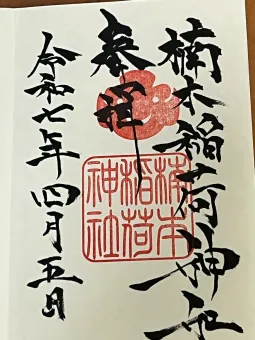 楠本稲荷神社
奉拝
令和七年四月五日
楠本
稲荷
神社